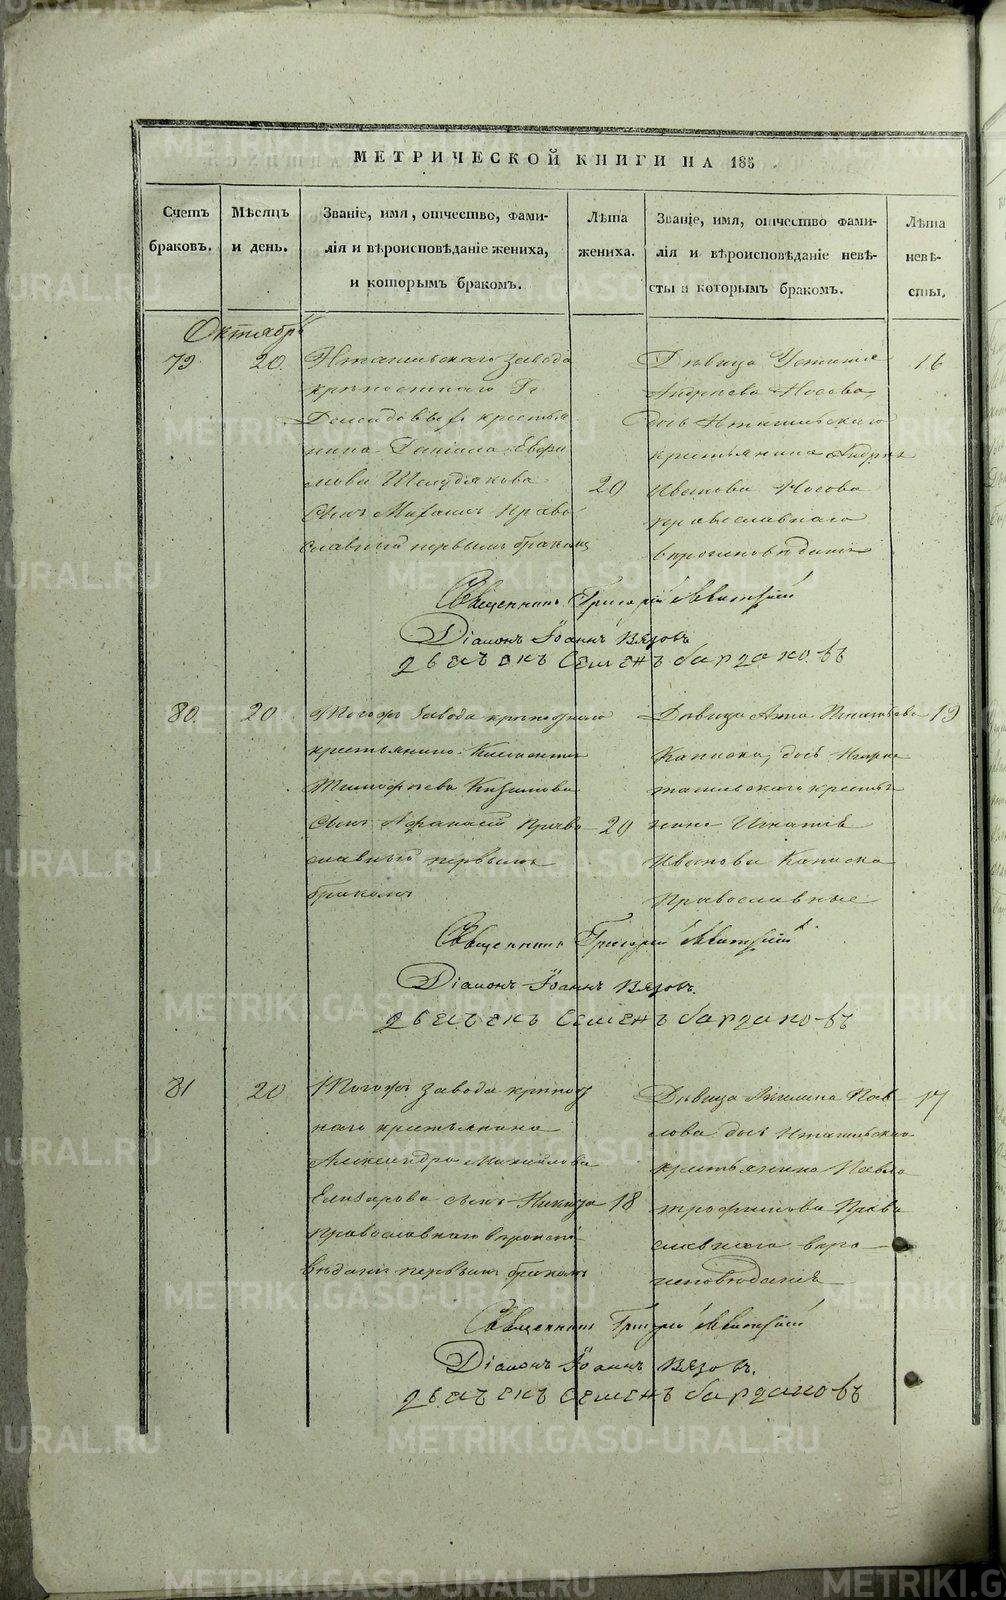 МЕТРИЧЕСКОЙ КНИГИ НА 185
Счетъ браковъ.
Мѣсяцъ и день.
Званіе, имя, отчество, фами-
лія и вѣроисповѣданіе жениха,
и которымъ бракомъ.
Лѣта жениха.
Званіе, имя, отчество фами-
лія и вѣроисповѣданіе невѣ-
сты и которымъ бракомъ.
Лѣта невѣ-
сты.
Октябрь
79
20.
Нтагильскаго завода
крѣпостнаго Гг
Демидовыхъ крестья
нина Даніила Евфи
мова Шелудякова
сынъ Михаилъ Право
славный первымъ бракомъ
20
Дѣвица Устинія
Андреева Носова,
дочь Нтагильскаго
крестьянина Андрея
Иванова Носова
православнаго
вѣроисповѣданія
16
Священникъ Григорій
Діаконъ Іоаннъ Вязовъ
Семенъ
80.
20
Тогожъ Завода крѣпостнаго
крестьянина Климентія
Тимофѣева Казанцова
сынъ Афанасій Право
славный первымъ
бракомъ
20
Дѣвица Анна Игнатьева
дочь Нижне
тагильскаго крестья
нина Игнатія
Иванова
Православные
19
Священникъ Григорій
Діаконъ Іоаннъ Вязовъ.
Семенъ
81
20
Тогожъ завода крѣпост
наго крестьянина
Александра Михайлова
Елизарова сынъ Никита
православнаго вѣроиспо
вѣданія первымъ бракомъ
18
Дѣвица Акилина Пав
лова дочь Нтагильскаго
крестьянина Павла
Трофимова Право
славнаго вѣро
исповѣданія
17
Священникъ Григорій
Діаконъ Іоаннъ Вязовъ.
Семенъ
METRIKI.GASO-URAL.RU